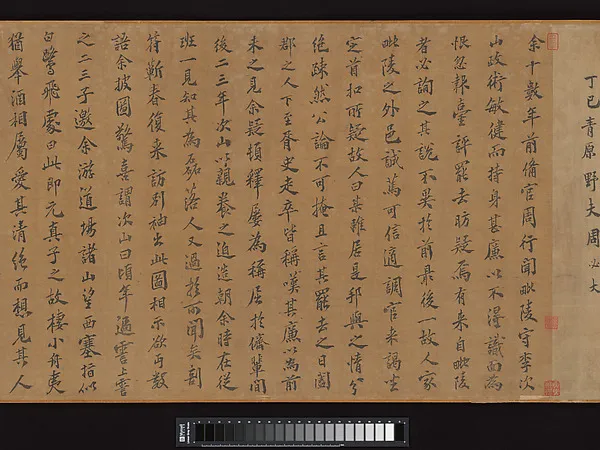 丁巳青原野夫周必大
余十數年前備官周行聞毗陵守李次
山政術敏健而持身甚廉以不得識面為
恨忽報臺評罷去昉疑焉有来自毗陵
者必詢之其說不異於前最後一故人家
毗陵之外邑誠篤可信適調官来謁坐
定首扣所疑故人曰某雖居是邦與之情分
絕疎然公論不可掩且言其罷去之日闔
郡之人下至胥史走卒皆稱嘆其廉以為前
未之見余疑頓釋屢為稱屈於儕輩間
後二三年次山以親養之迫造朝余時在從
班一見知其為磊落人又過於所聞矣剖
符蘄春復来訪別袖出此圖相示欲丐數
語余披圖驚喜謂次山曰頃年過霅上霅
之二三子邀余游道場諸山望西塞指似
白鷺飛處曰此即元真子之故棲小舟夷
猶舉酒相屬愛其清絕而想見其人